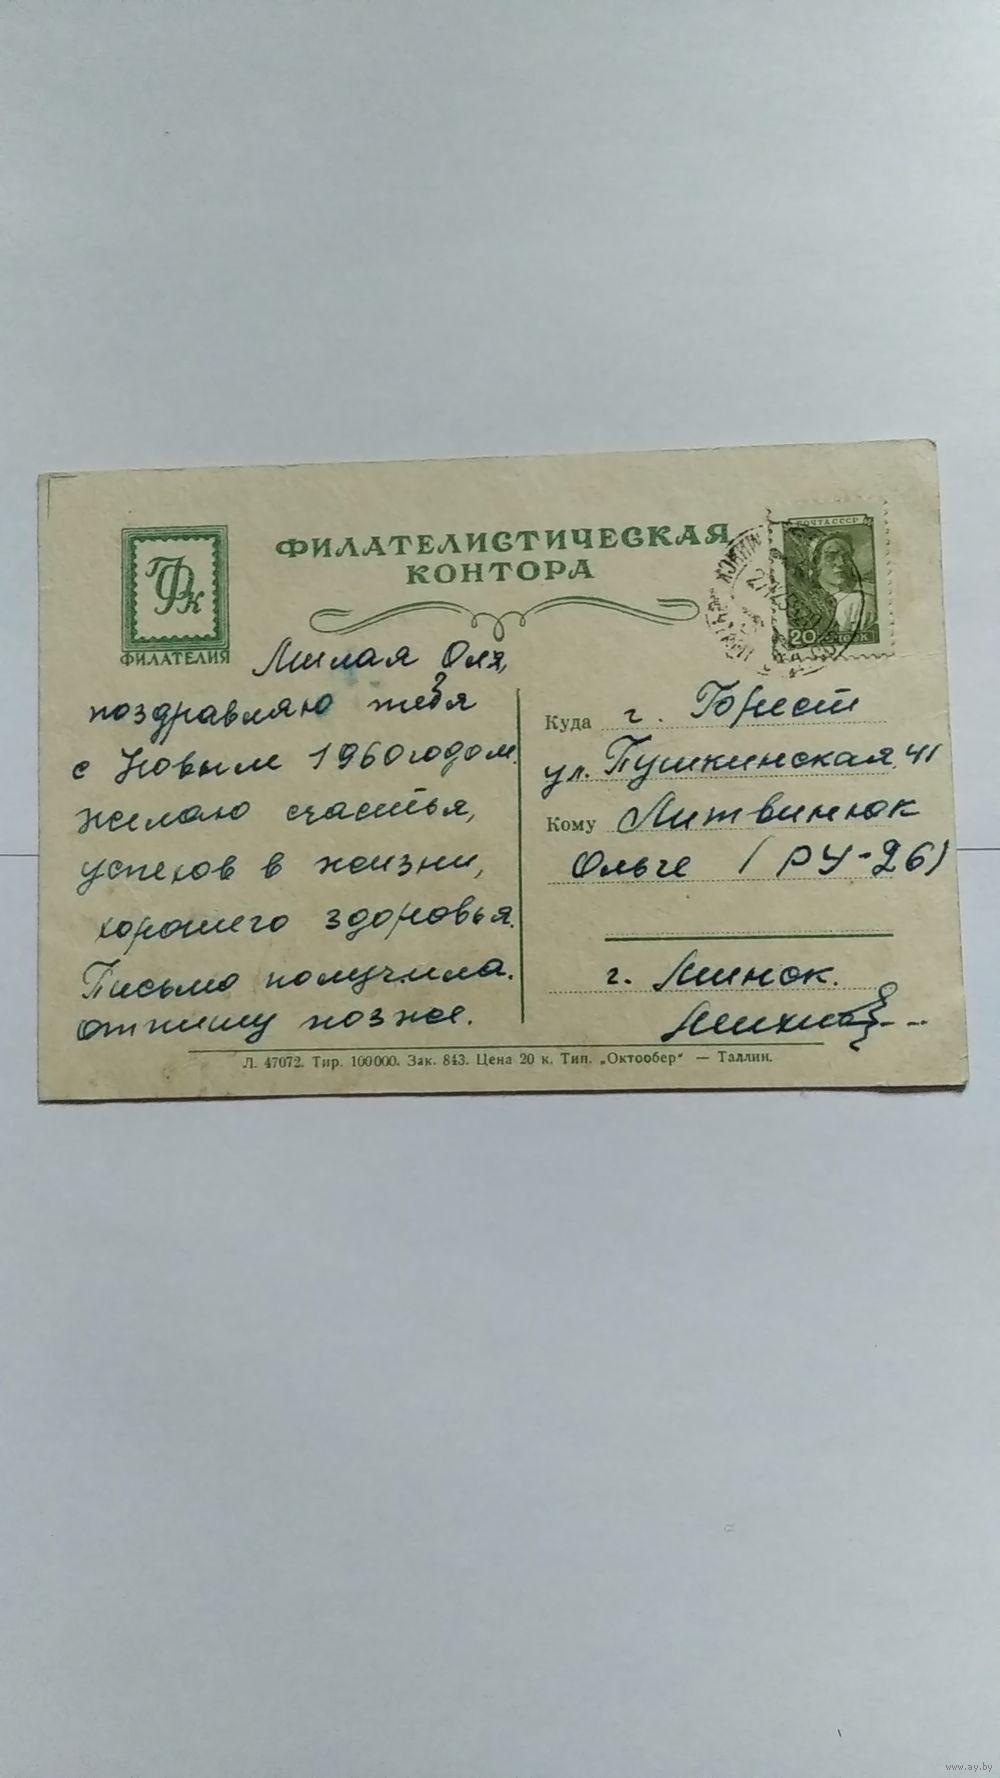 ФИЛАТЕЛИСТИЧЕСКАЯ
КОНТОРА
ГФК
ФИЛАТЕЛИЯ
ПОЧТА СССР
20 КОП
Милая Оля,
поздравляю тебя
с Новым 1960 годом.
желаю счастья,
успехов в жизни,
хорошего здоровья.
Письмо получила.
отпишу позже.
Куда г. Брест
ул. Пушкинская 41
Кому Литвинюк
Ольге (РУ-26)
г. Минск.
Л. 47072. Тир. 100000. Зак. 843. Цена 20 к. Тип. „Октообер“ — Таллин.
www.ay.by